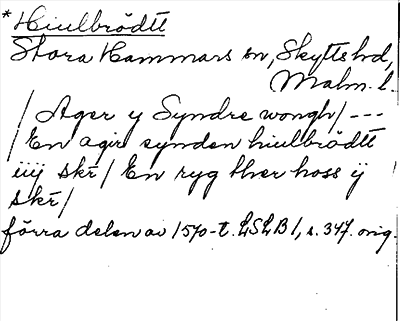 *Hiulbrödtt
Stora Hammars sn, Skytts hd,
Malm. l.
/ Ager y Syndre wongh / ---
/ En agir synden hiulbrödtt
iiij skr̄ / En ryg ther hoss ij
skr̄ /
förra delen av 1570-t. LSLB 1, s. 347. orig.